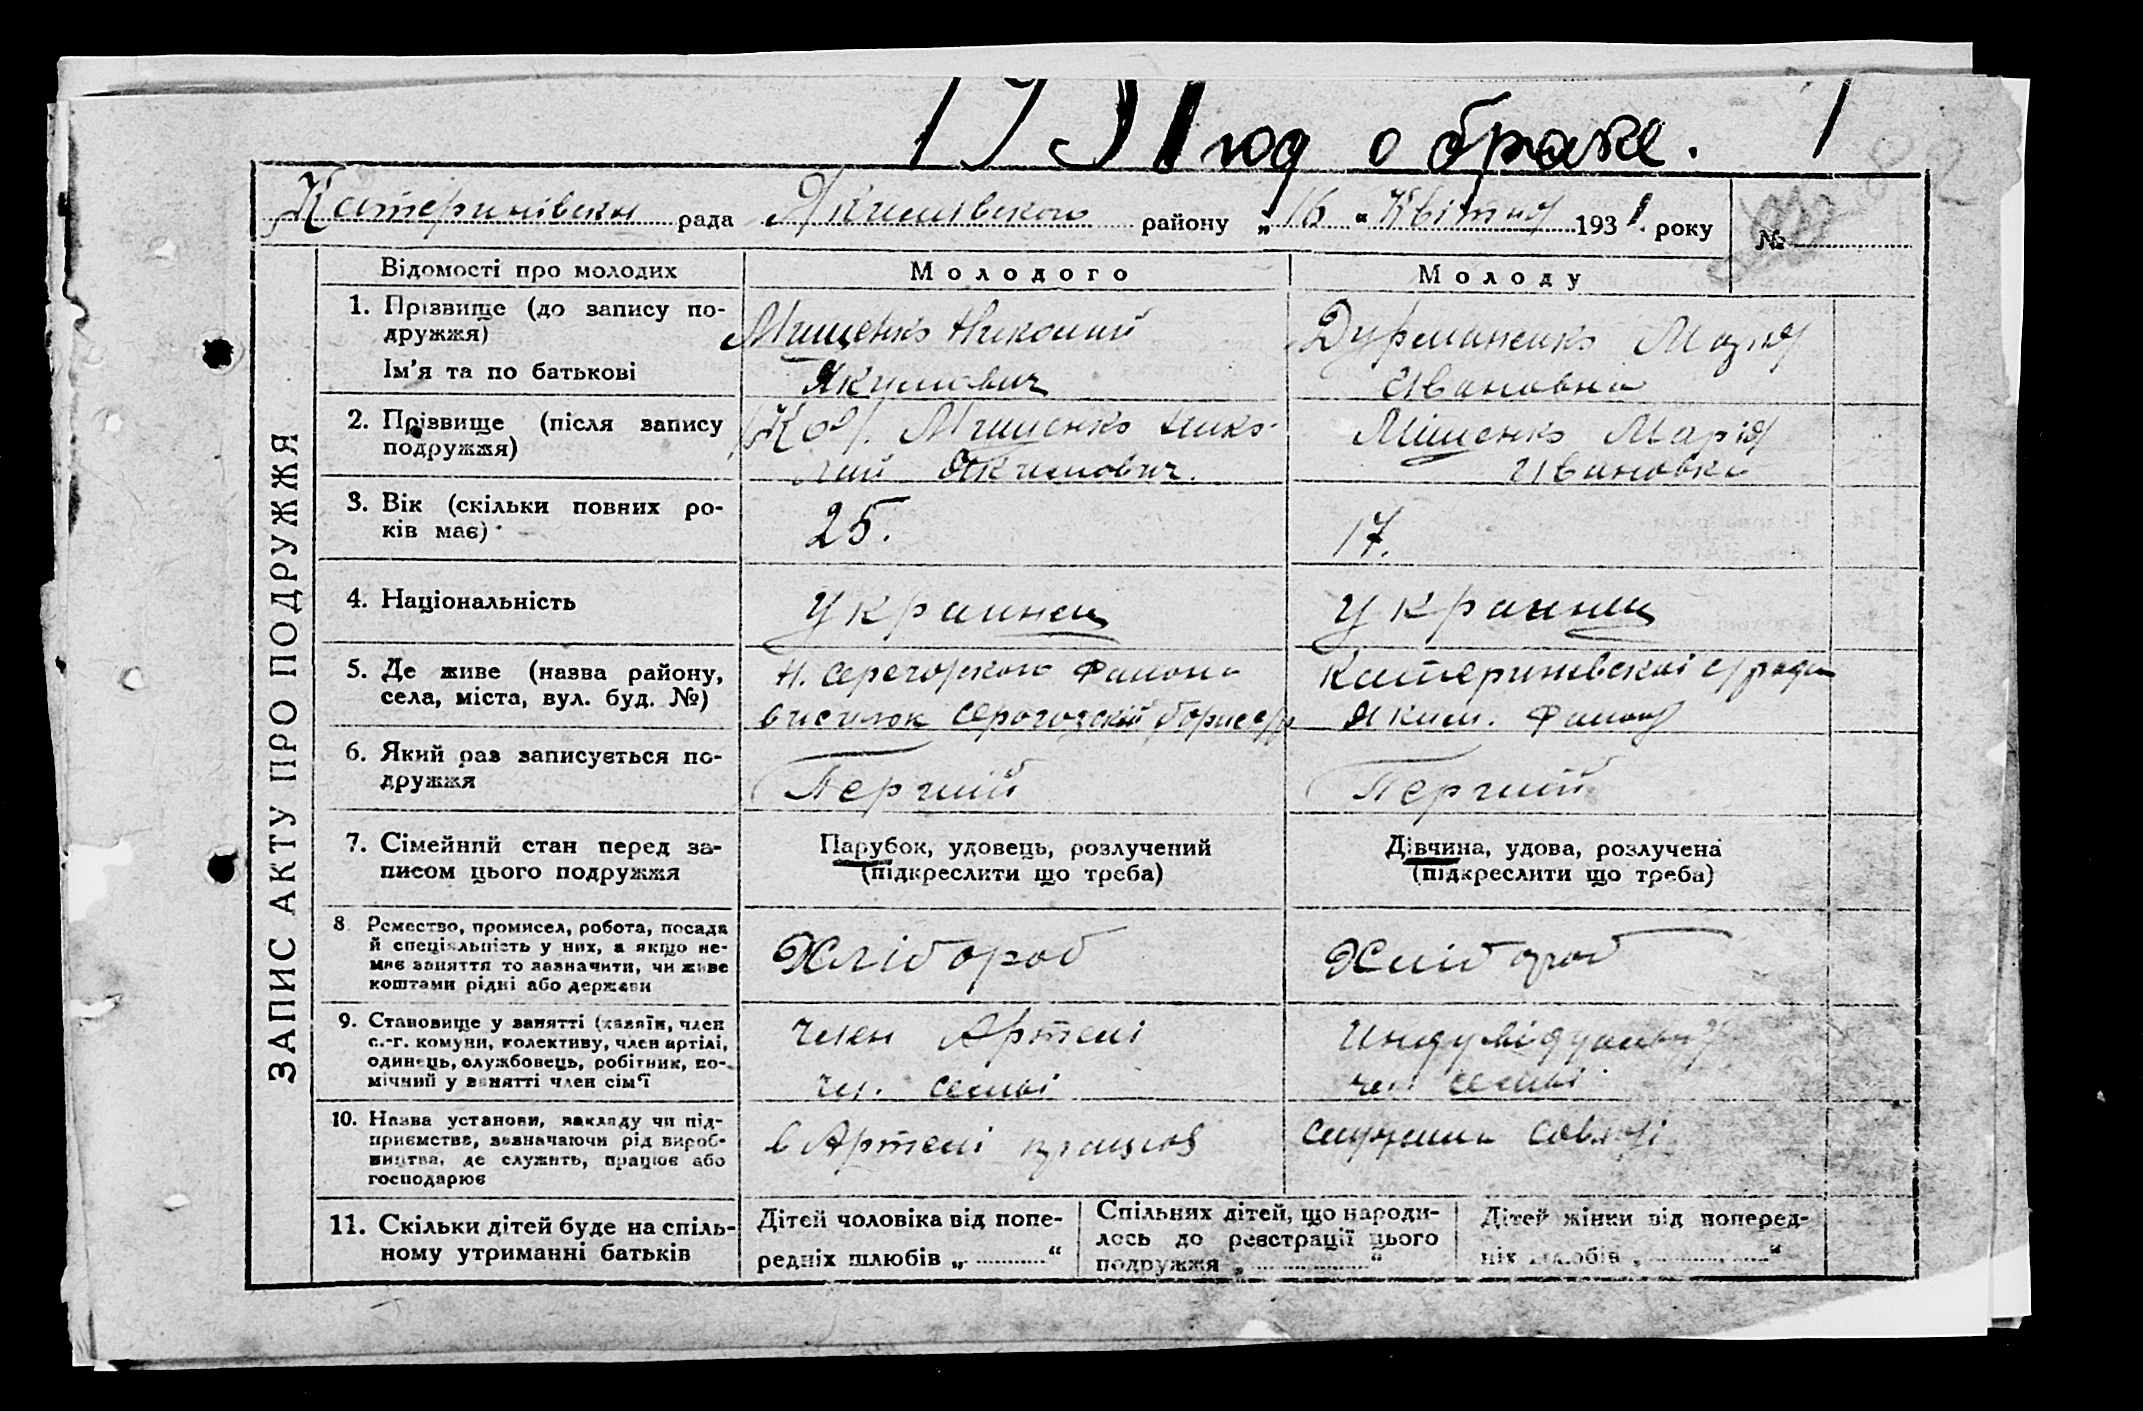 1931 год о браке. 1
Катеринівська рада Якимівского району „16“ Квітня 1931 року №
ЗАПИС АКТУ ПРО ПОДРУЖЖЯ
Відомості про молодих Молодого Молоду
1. Прізвище (до запису по-
дружжя)
Ім'я та по батькові
Мищенко Николай
Якимович
Дурманенко Марія
Ивановна
2. Прізвище (після запису
подружжя)
Мищенко Нико-
лай Якимович.
Міщенко Марія
Ивановна
3. Вік (скільки повних ро-
ків має)
25.
17.
4. Національність
Украинец
Украинец
5. Де живе (назва району,
села, міста, вул. буд. №)
Н. Серегозского Району
висилок
Катериневскаі с/ради
Яким. Району
6. Який раз записується по-
дружжя
Перший
Перший
7. Сімейний стан перед за-
писом цього подружжя
Парубок, удовець, розлучений
(підкреслити що треба)
Дівчина, удова, розлучена
(підкреслити що треба)
8. Ремество, промисел, робота, посада
й спеціяльність у них, а якщо не-
має заняття то зазначити, чи живе
коштами рідні або держави
Хлібороб
Хлібороб
9. Становище у занятті (хазяїн, член
с.-г. комуни, колективу, член артілі,
одинець, службовець, робітник, по-
мічний у занятті член сім'ї
член Артелі
чл. семьі
чл. семьі
10. Назва установи, закладу чи під-
приємства, зазначаючи рід вироб-
ництва, де служить, працює або
господарює
в Артелі працює
11. Скільки дітей буде на спіль-
ному утриманні батьків
Дітей чоловіка від попе-
редніх шлюбів „ “
Спільних дітей, що народи-
лось до реєстрації цього
подружжя „ “
Дітей жінки від поперед-
ніх шлюбів „ “